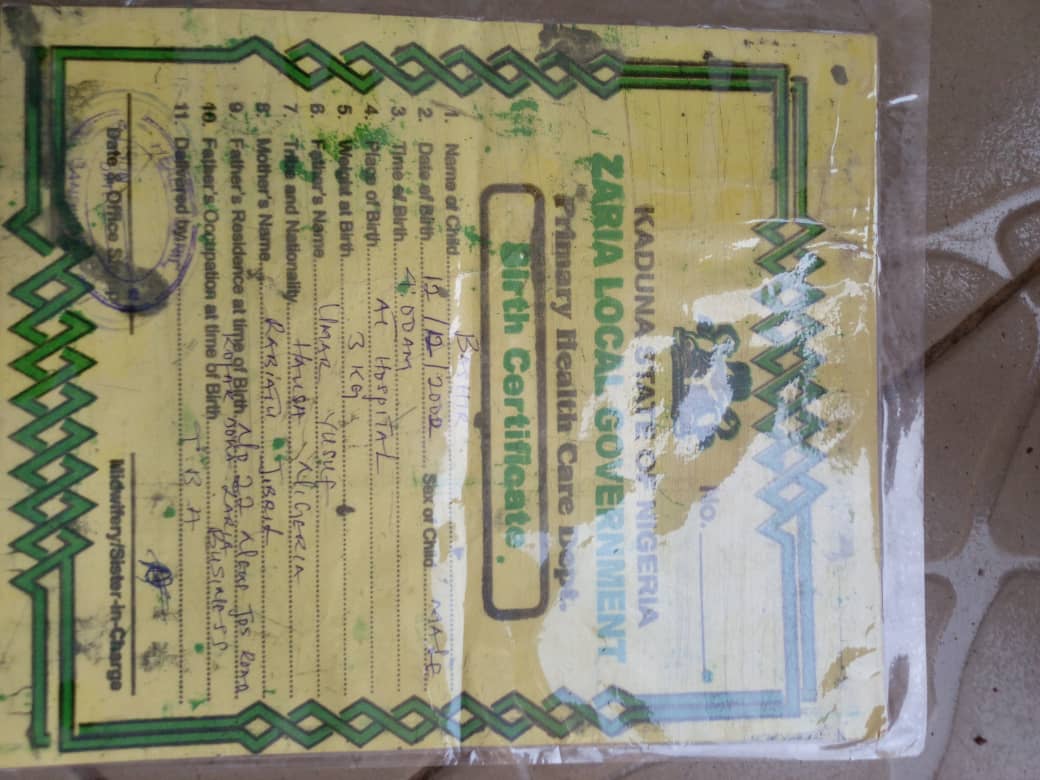 No.
KADUNA STATE OF NIGERIA
ZARIA LOCAL GOVERNMENT
Primary Health Care Dept.
Birth Certificate
1. Name of Child BASHIR
2. Date of Birth 12/12/2002 Sex of Child MALE
3. Time of Birth 4:00AM
4. Place of Birth At HospITAL
5. Weight at Birth 3 Kg
6. Father's Name UMAR YUSUF
7. Tribe and Nationality HAUSA NIGERIA
8. Mother's Name RABIATU JIBRIL
9. Father's Residence at time of Birth No 22 Jos ROAD
ZARIA
10. Father's Occupation at time of Birth BUSINESS
11. Delivered by T B A
Date & Office
Midwifery/Sister-In-Charge